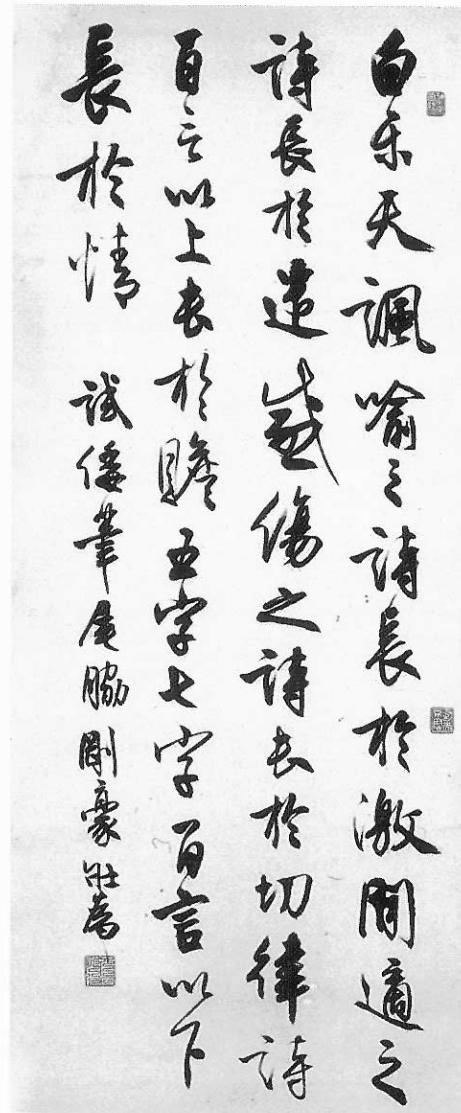 白樂天諷喻之詩長於激閒適之
詩長於遣感傷之詩長於切律詩
百言以上長於贍五字七字百言以下
長於情 試倭筆 脇剛豪